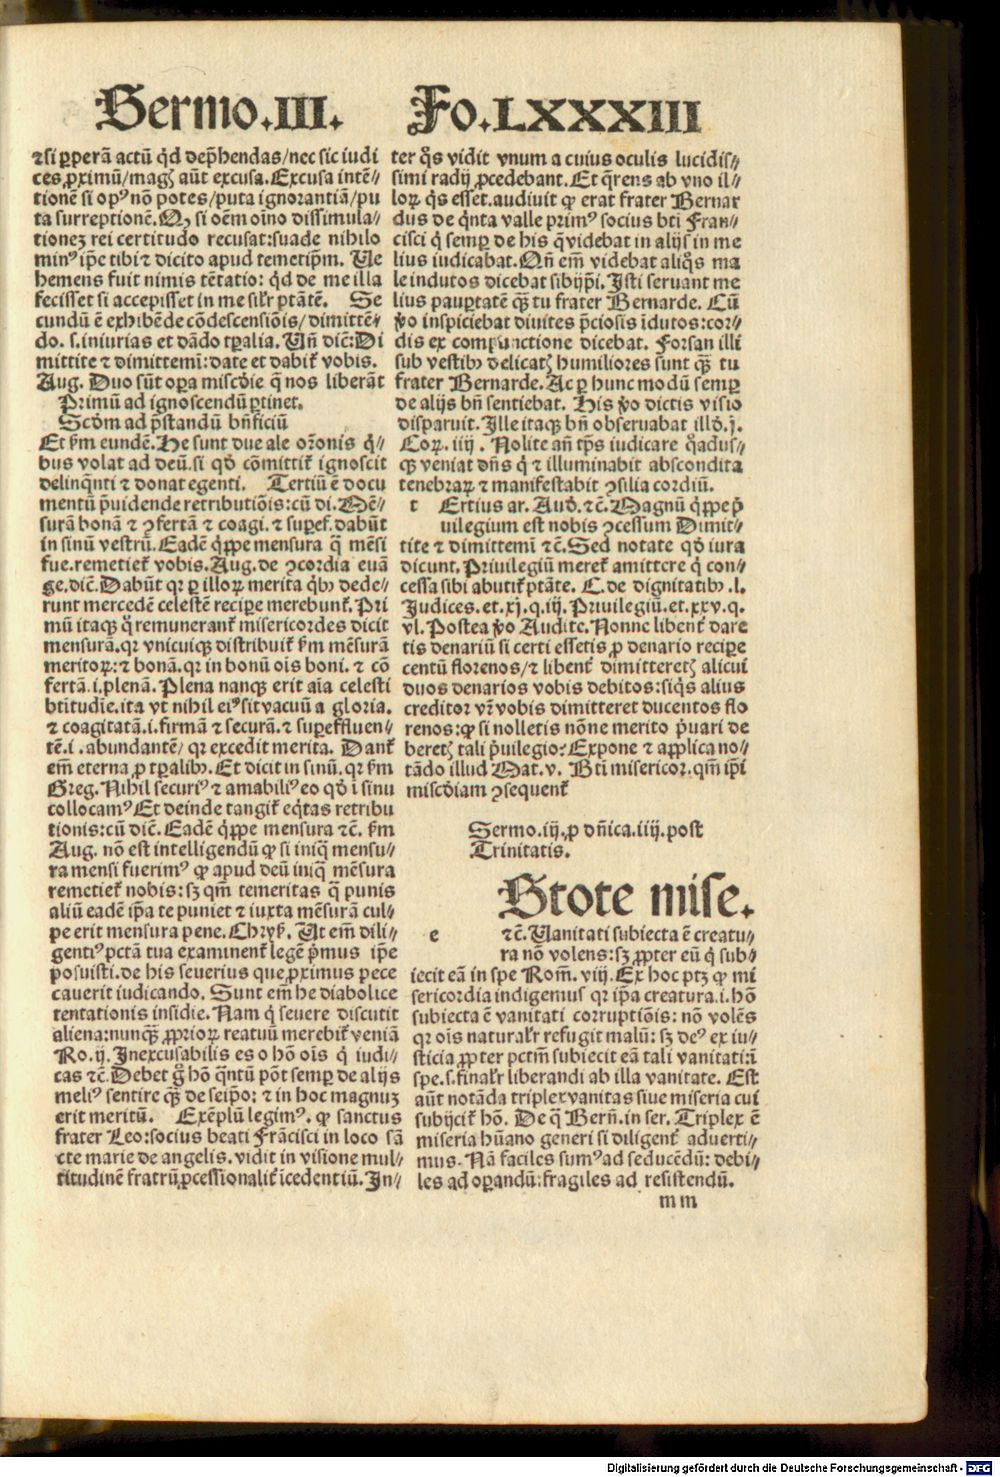 Sermo.III. Fo.LXXXIII
⁊si ꝑperā actū qͥd dep̄hendas/nec sic iudi
ces ꝓximū/magꝭ aūt excusa. Excusa intē//
tionē si opꝰ nō potes/puta ignorantiā/pu
ta surreptionē. Qꝫ si oēm oīno dissimula//
tionez rei certitudo recusat:suade nihilo
minꝰ ip̄e tibi ⁊ dicito apud temetip̄m. Ue
hemens fuit nimis tētatio: qͥd de me illa
fecisset si accepisset in me silr̄ ptātē. Se
cundū ē exhibēde cōdescensiōis/dimittē//
do. s.iniurias et dādo tꝑalia. Uñ dic̄:Di
mittite ⁊ dimittemī:date et dabit̄ vobis.
Aug. Duo sūt oꝑa misc̄die q̄ nos liberāt
Primū ad ignoscendū ꝑtinet.
Scd̄m ad p̄standū bn̄ficiū
Et ẜm eundē. He sunt due ale or̄onis qͥ//
bus volat ad deū.si qd̄ cōmittit̄ ignoscit
delinq̄nti ⁊ donat egenti. Tertiū ē docu
mentū p̄uidende retributiōis:cū di. Mē//
surā bonā ⁊ ꝯfertā ⁊ coagi. ⁊ suꝑef. dabūt
in sinū vestrū. Eadē qͥppe mensura q̄ mēsi
fue.remetiet̄ vobis. Aug. de ꝯcordia euā
ge.dic̄. Dabūt qr ꝑ illoꝝ merita qͥbꝫ dede//
runt mercedē celestē reciꝑe merebunt̄. Pri
mū itaqꝫ qͥ remunerant̄ misericordes dicit
mensurā.qr vnicuiqꝫ distribuit̄ ẜm mēsurā
meritoꝝ:⁊ bonā.qr in bonū oīs boni. ⁊ cō
fertā.i.plenā. Plena nanqꝫ erit aīa celesti
btitudīe.ita vt nihil eiꝰ sit vacuū a gloria.
⁊ coagitatā.i.firmā ⁊ securā.⁊ suꝑeffluen//
tē.i.abundantē/ qr excedit merita. Dant̄
em̄ eterna ꝓ tꝑalibꝫ. Et dicit in sinū.qr ẜm
Greg. Nihil securiꝰ ⁊ amabiliꝰ eo qd̄ ī sinu
collocamꝰ Et deinde tangit̄ eq̄tas retribu
tionis:cū dic̄. Eadē qͥppe mensura ⁊c̄. ẜm
Aug. nō est intelligendū ꝙ si iniq̄ mensu//
ra mensi fuerimꝰ ꝙ apud deū iniq̄ mēsura
remetiet̄ nobis:sꝫ qm̄ temeritas q̄ punis
aliū eadē ip̄a te puniet ⁊ iuxta mēsurā cul//
pe erit mensura pene. Chryſ. Ut em̄ dili//
gentiꝰ pctā tua examinent̄ legē p̄mus ip̄e
posuisti.de his seuerius que ꝓximus pece
cauerit iudicando. Sunt em̄ he diabolice
tentationis insidie. Nam qͥ seuere discutit
aliena:nunqꝫ̄ ꝓprioꝝ reatuū merebit̄ veniā
Ro.ij. Inexcusabilis es o hō oīs qͥ iudi//
cas ⁊c̄. Debet g̊ hō qͣntū pōt semꝑ de alijs
meliꝰ sentire qꝫ̄ de seip̄o: ⁊ in hoc magnuz
erit meritū. Exēplū legimꝰ. ꝙ sanctus
frater Leo:socius beati Frācisci in loco sā
cte marie de angelis.vidit in visione mul//
titudinē fratrū ꝓcessionalit̄ īcedentiū. In//
ter qͦs vidit vnum a cuius oculis lucidis//
simi radij ꝓcedebant. Et q̄rens ab vno il//
loꝝ qͥs esset.audiuit ꝙ erat frater Bernar
dus de qͥnta valle primꝰ socius bti Fran//
cisci qͥ semꝑ de his q̄ videbat in alijs in me
lius iudicabat. Qn̄ em̄ videbat aliqͦs ma
le indutos dicebat sibijp̄i. Isti seruant me
lius pauꝑtatē qꝫ̄ tu frater Bernarde. Cū
ꝟo inspiciebat diuites p̄ciosis īdutos:cor//
dis ex compunctione dicebat. Forsan illi
sub vestibꝫ delicatꝭ humiliores sunt qꝫ̄ tu
frater Bernarde. Ac ꝑ hunc modū semꝑ
de alijs bn̄ sentiebat. His ꝟo dictis visio
disparuit. Ille itaqꝫ bn̄ obseruabat illd̄.j.
Coꝝ.iiij. Nolite an̄ tp̄s iudicare qͦadus//
qꝫ veniat dn̄s qͥ ⁊ illuminabit abscondita
tenebraꝝ ⁊ manifestabit ꝯsilia cordiū.
t Ertius ar. Aud̄. ⁊c̄. Magnū qͥppe p̄
uilegium est nobis ꝯcessum Dimit//
tite ⁊ dimittemī ⁊c̄. Sed notate qd̄ iura
dicunt. Priuilegiū meret̄ amittere qͥ con//
cessa sibi abutit̄ ptāte. C. de dignitatibꝫ .l.
Judices.et.xj.q.iij. Priuilegiū.et.xxv.q.
vl. Postea ꝟo Audite. Nonne libent̄ dare
tis denariū si certi essetis ꝓ denario reciꝑe
centū florenos/⁊ libent̄ dimitteretꝭ alicui
duos denarios vobis debitos:siqͥs alius
creditor vr̄ vobis dimitteret ducentos flo
renos:ꝙ si nolletis nōne merito p̄uari de
beretꝭ tali p̄uilegio? Expone ⁊ applica no//
tādo illud Mat.v. Bti misericor.qm̄ ip̄i
misc̄diam ꝯsequent̄
Sermo.iij.ꝓ dn̄ica.iiij.post
Trinitatis.
Stote mise.
e ⁊c̄. Uanitati subiecta ē creatu//
ra nō volens:sꝫ ꝓpter eū qͥ sub//
iecit eā in spe Rom̄. viij. Ex hoc ptꝫ ꝙ mi
sericordia indigemus qr ip̄a creatura.i.hō
subiecta ē vanitati corruptiōis: nō volēs
qr oīs naturalr̄ refugit malū: sꝫ deꝰ ex iu//
sticia ꝓpter pctm̄ subiecit eā tali vanitati:ī
spe.s.finalr̄ liberandi ab illa vanitate. Est
aūt notāda triplex vanitas siue miseria cui
subijcit̄ hō. De q̄ Bern̄. in ser. Triplex ē
miseria hūano generi si diligent̄ aduerti//
mus. Nā faciles sumꝰ ad seducēdū: debi//
les ad oꝑandū:fragiles ad resistendū.
m m
Digitalisierung gefördert durch die Deutsche Forschungsgemeinschaft - DFG